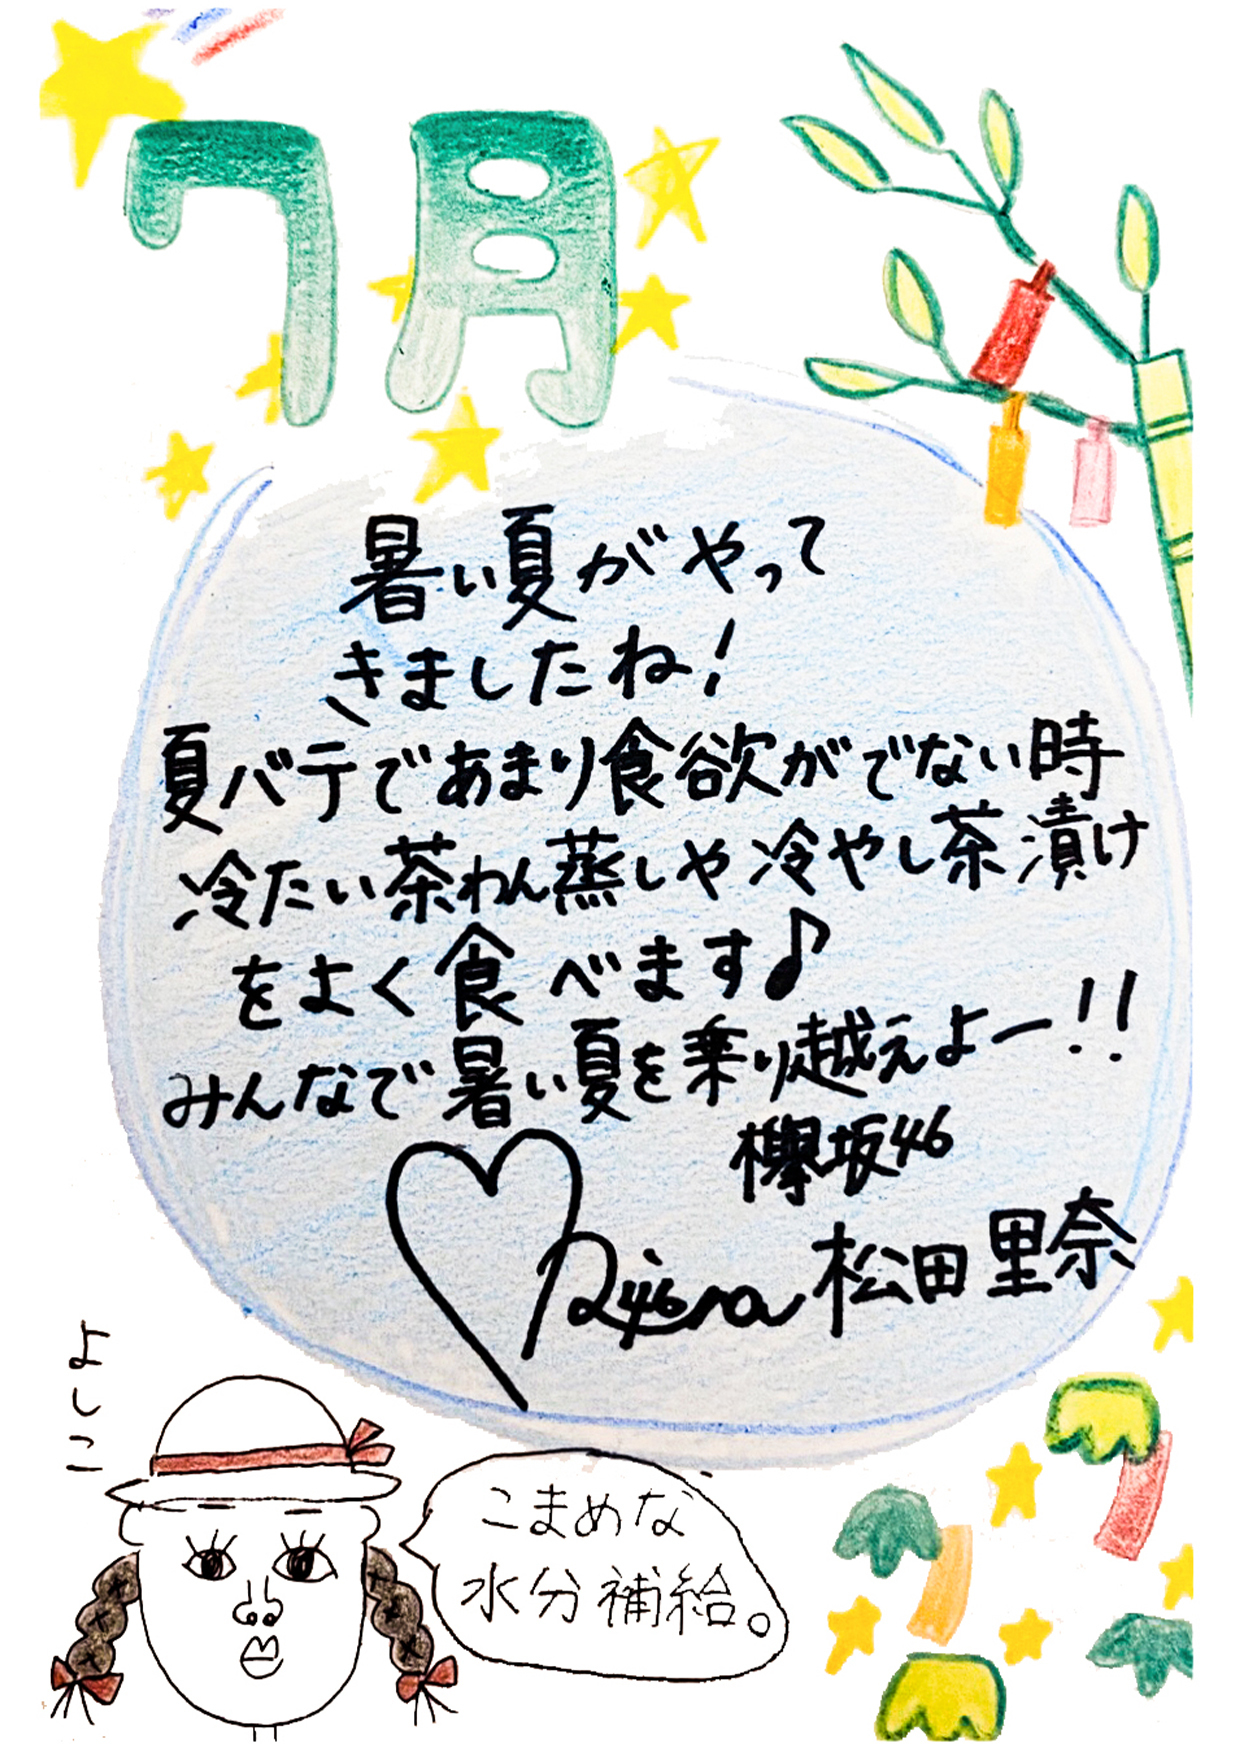 7月
暑い夏がやって
きましたね!
夏バテであまり食欲がでない時
冷たい茶わん蒸しや冷やし茶漬け
をよく食べます♪
みんなで暑い夏を乗り越えよー!!
欅坂46
松田里奈
よしこ
こまめな
水分補給。